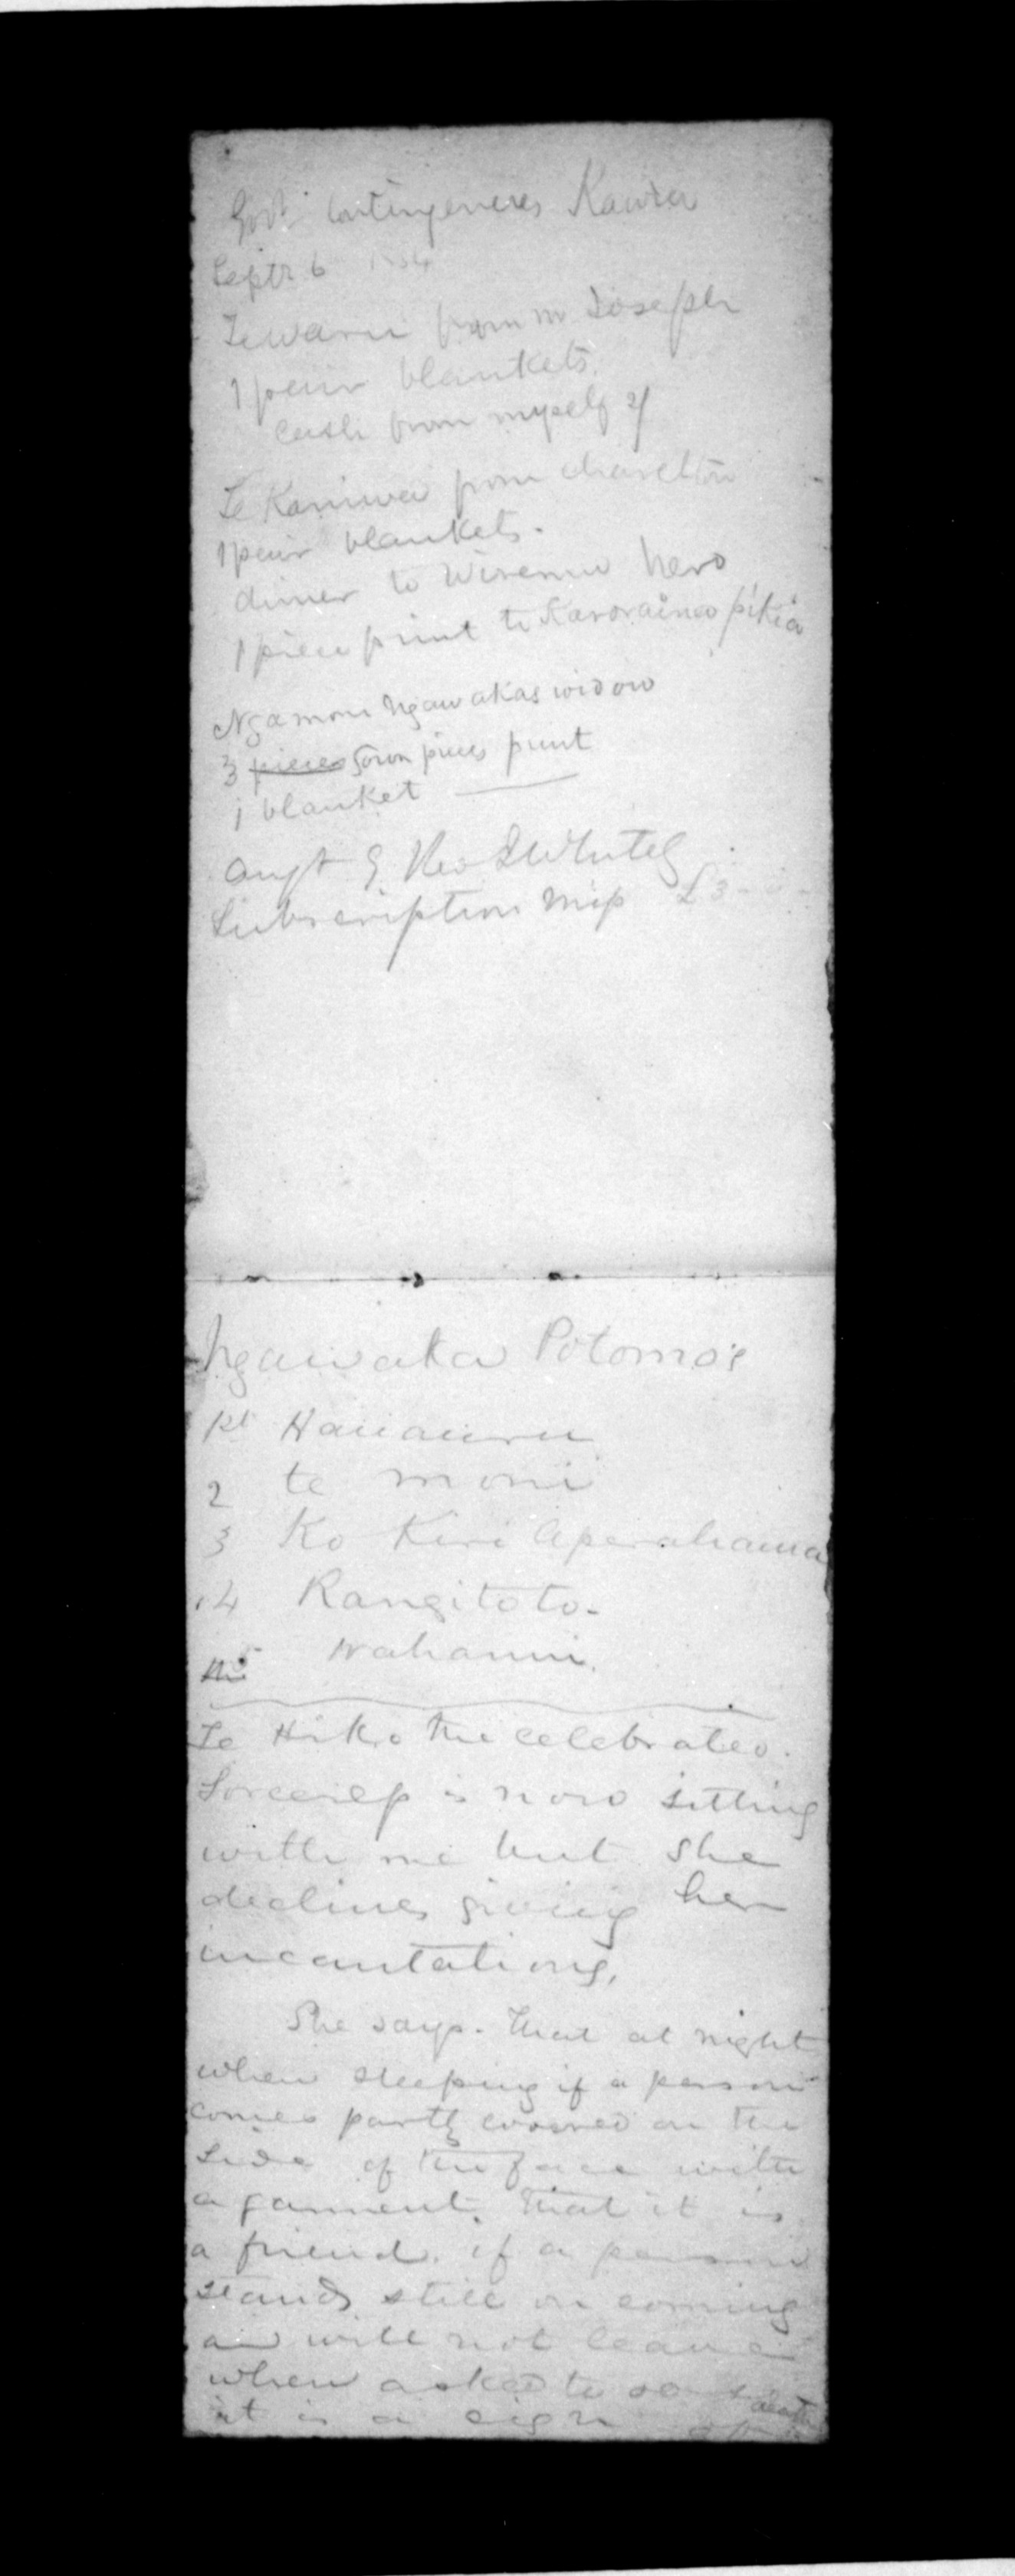 Govt Contingencies Kawia
Septr 6
Te waru from Mr Joseph
1 pair blankets.
Cash from myself 2/
Te Kaniwa from Charelton
1 pair blankets.
dinner to Wiremu Nero
1 piece print to Kararaina pikia
Ngamoni Ngawakas widow
3 pieces gown pieces print
1 blanket
Augt 9 Rev J Whitely
Subscription Mis £3
Ngawaka Potomo's
1st Hauauru
2 te moni
3 Ko Kiri Aperahama
4 Rangitoto.
5 Wahanui.
Te Hiko the celebrated.
Sorceress is now sitting
with me but she
declines giving her
incantations,
She says. that at night
when sleeping if a person
comes partly covered on the
side of the face with
a garment. that it is
a friend. if a person
stands still on coming
and will not leave
when asked to so death
it is a sign of